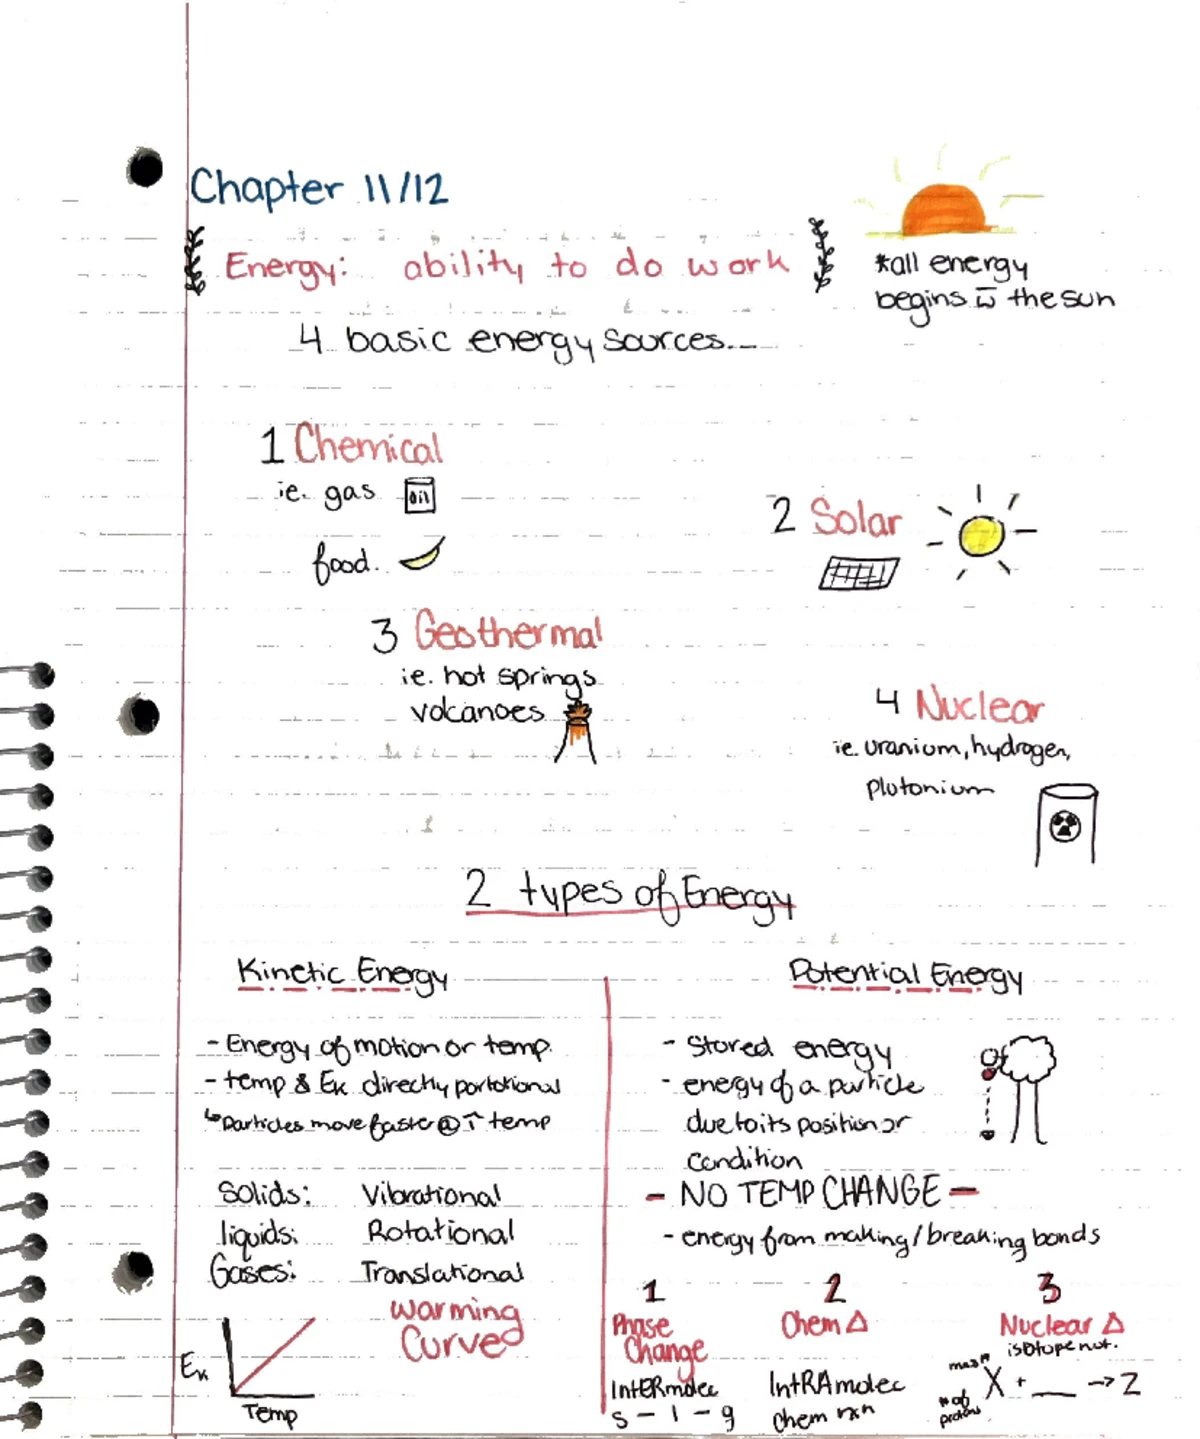 Chapter 11/12
Energy: ability to do work
*all energy
begins w̄ the sun
4 basic energy sources...
1 Chemical
ie. gas oil
food.
2 Solar
3 Geothermal
ie. hot springs
volcanoes
4 Nuclear
ie. uranium, hydrogen,
plutonium
2 types of Energy
Kinetic Energy
- Energy of motion or temp.
- temp & Ek directly portotional
↳ Particles move faster @ ↑ temp
Solids: Vibrational
liquids: Rotational
Gases: Translational
warming
Curve
Ek
Temp
Potential Energy
- Stored energy
- energy of a particle
due to its position or
condition
- NO TEMP CHANGE -
- energy from making/breaking bonds
1
Phase
Change
IntERmolec
s - l - g
2
Chem Δ
IntRAmolec
chem rxn
3
Nuclear Δ
isotope not.
mass #
X + ___ → Z
# of
protons